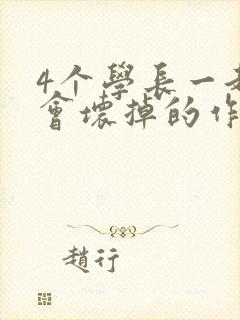 4个學長一
會壞掉的作
趙行